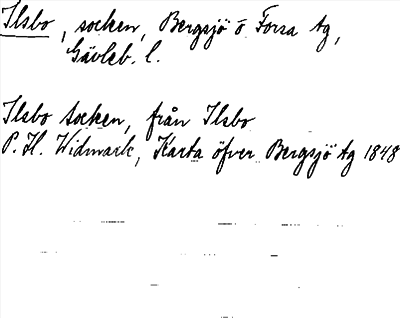 Ilsbo, socken, Bergsjö o Forsa tg,
Gävleb. l.
Ilsbo socken, från Ilsbo
P. H. Widmark, Karta öfver Bergsjö tg 1848